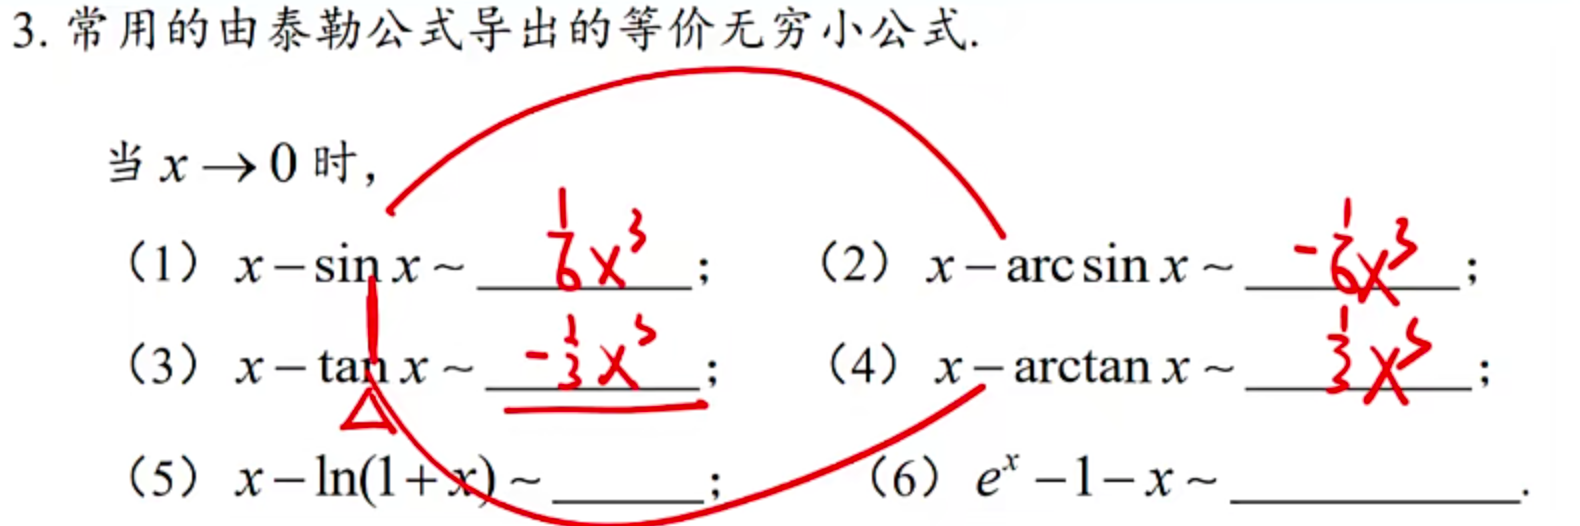 3. 常用的由泰勒公式导出的等价无穷小公式.
当 x → 0 时，
（1） x − sin x ~ 1/6 x³ ； （2） x − arcsin x ~ −1/6 x³ ；
（3） x − tan x ~ −1/3 x³ ； （4） x − arctan x ~ 1/3 x³ ；
（5） x − ln(1 + x) ~ ______ ； （6） eˣ − 1 − x ~ ______ .